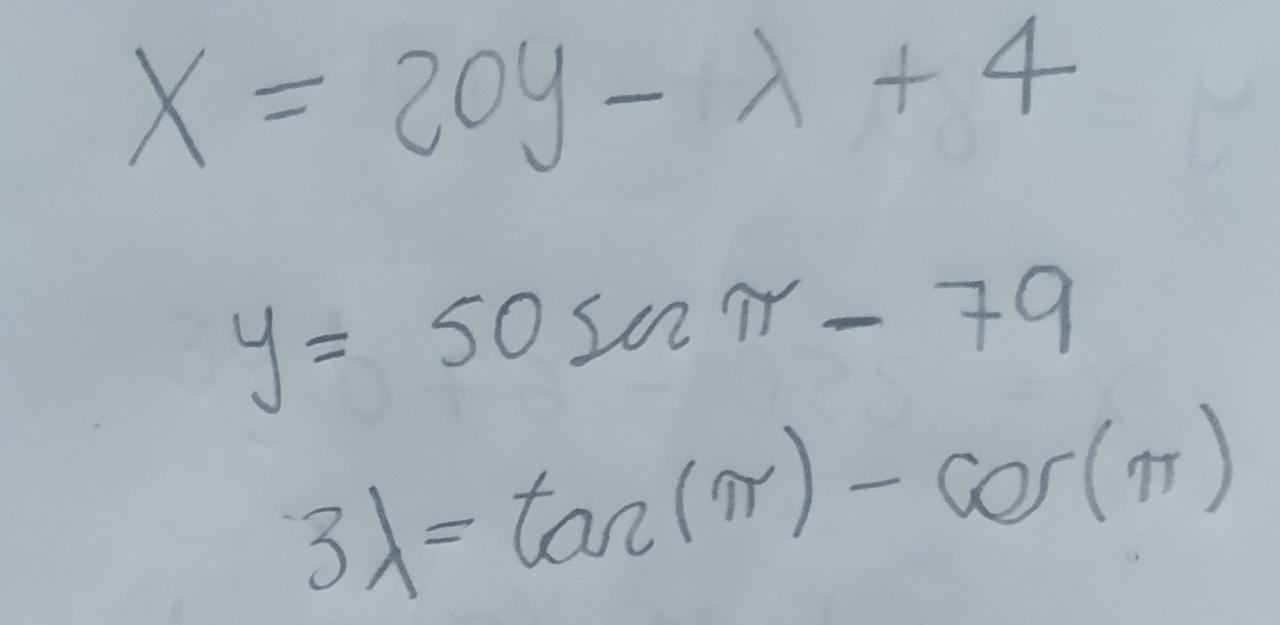 X = 20y - λ + 4
y = 50 sen π - 79
3λ = tan(π) - cos(π)